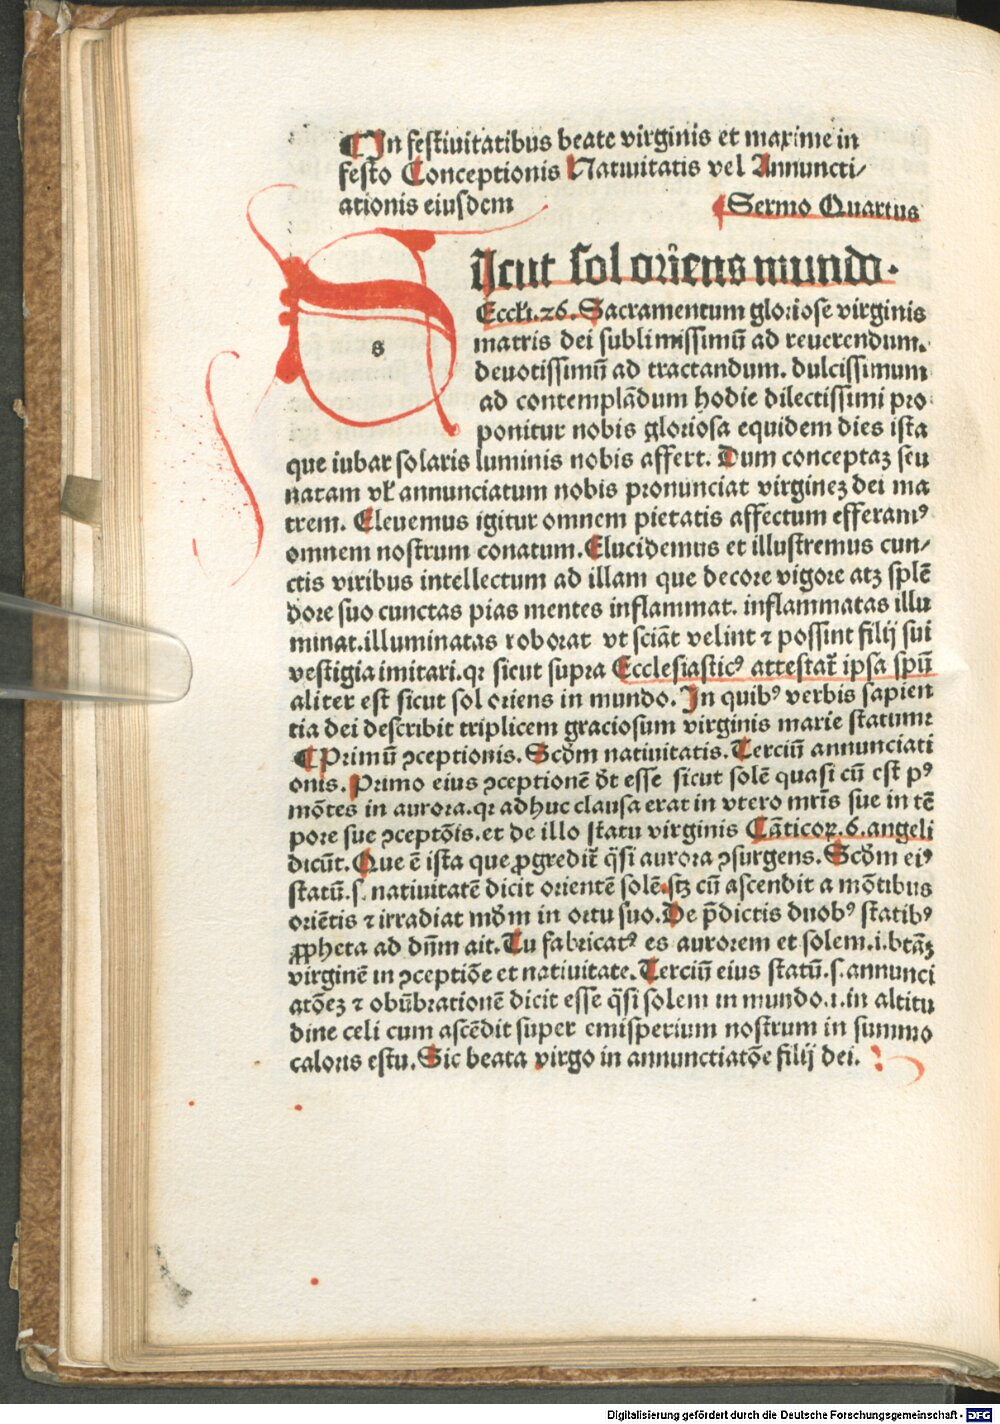 ¶ In festiuitatibus beate virginis et maxime in
festo Conceptionis Natiuitatis vel Annuncti/
ationis eiusdem ¶ Sermo Quartus
Sicut sol oriens mundo.
Eccłi.26. Sacramentum gloriose virginis
matris dei sublimissimū ad reuerendum.
deuotissimū ad tractandum. dulcissimum
ad contemplādum hodie dilectissimi pro
ponitur nobis gloriosa equidem dies ista
que iubar solaris luminis nobis affert. Dum conceptaꝫ seu
natam vł annunciatum nobis pronunciat virgineꝫ dei ma
trem. Eleuemus igitur omnem pietatis affectum efferamꝰ
omnem nostrum conatum. Elucidemus et illustremus cun/
ctis viribus intellectum ad illam que decore vigore atꝫ splē
dore suo cunctas pias mentes inflammat. inflammatas illu
minat. illuminatas roborat vt sciāt velint ⁊ possint filij sui
vestigia imitari. qr sicut supra Ecclesiasticꝰ attestat̄ ipsa spūt
aliter est sicut sol oriens in mundo. In quibꝰ verbis sapien
tia dei describit triplicem graciosum virginis marie statum:
¶ Primū ꝯceptionis. Scd̄m natiuitatis. Terciū annunciati
onis. Primo eius ꝯceptionē d̄t esse sicut solē quasi cū est pꝰ
mōtes in aurora. qr adhuc clausa erat in vtero mr̄is sue in tē
pore sue ꝯceptōis. et de illo statu virginis Cāticoꝝ.6. angeli
dicūt. Que ē ista que ꝓgredit̄ q̄si aurora ꝯsurgens. Scd̄m eiꝰ
statū. s. natiuitatē dicit orientē solē. stꝫ cū ascendit a mōtibus
oriētis ⁊ irradiat mūdm in ortu suo. De p̄dictis duobꝰ statibꝰ
ꝓpheta ad dn̄m ait. Tu fabricatꝰ es aurorem et solem. i. btāꝫ
virginē in ꝯceptiōe et natiuitate. Terciū eius statū. s. annunci
atōeꝫ ⁊ obūbrationē dicit esse q̄si solem in mundo. i. in altitu
dine celi cum ascēdit super emisperium nostrum in summo
caloris estu. Sic beata virgo in annunctiatōe filij dei.
Digitalisierung gefördert durch die Deutsche Forschungsgemeinschaft - DFG